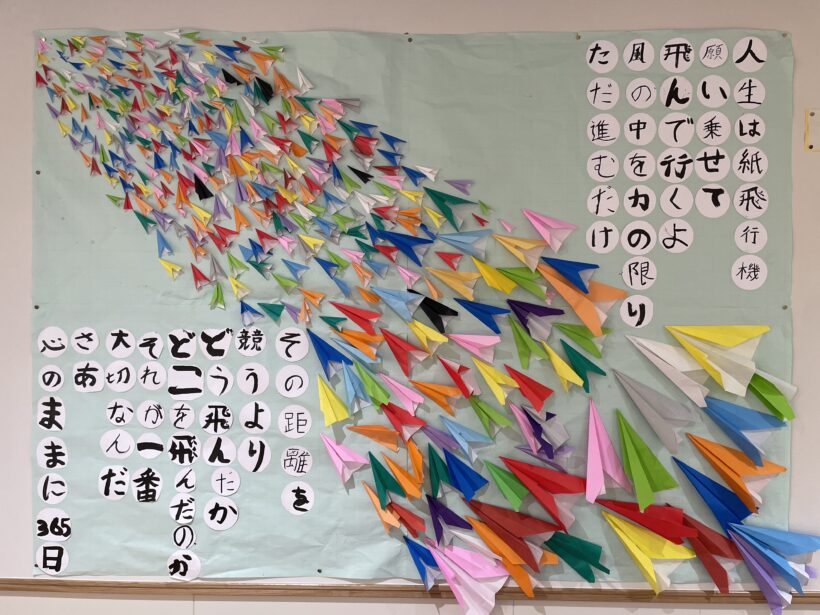 人生は紙飛行機
願い乗せて
飛んで行くよ
風の中を力の限り
ただ進むだけ
その距離を
競うより
どう飛んだか
どこを飛んだのか
それが一番
大切なんだ
さあ
心のままに365日